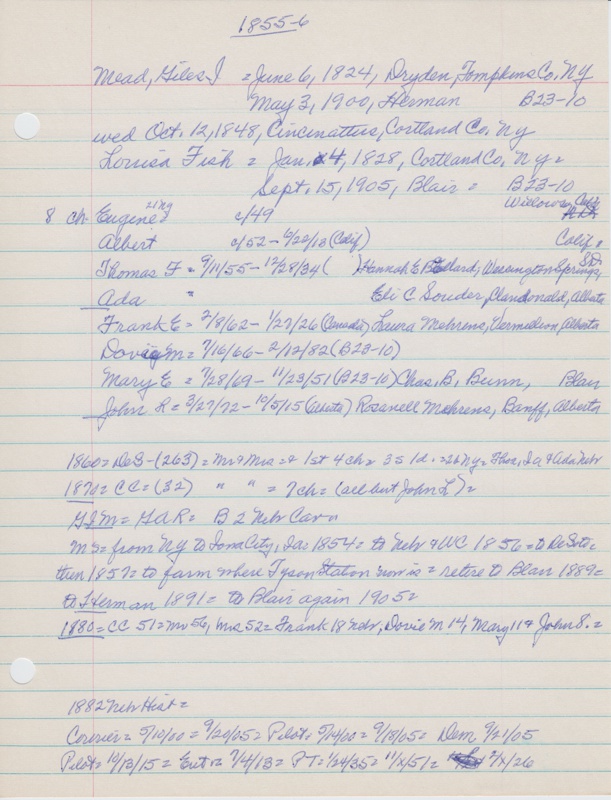 1855-6
Mead, Giles J = June 6, 1824, Dryden, Tompkins Co, NY
May 3, 1900, Herman B23-10
wed Oct. 12, 1848, Cincinattus, Cortland Co, NY
Louisa Fish = Jan. 4, 1828, Cortland Co, NY =
Sept. 15, 1905, Blair = B23-10
8 ch Eugene = c/49 Willows, Calif
Albert c/52 - 6/20/13 (Calif) Calif =
Thomas F = 9/11/55 - 12/28/34 ( ) Hannah E Wessington Springs, SD
Ada " Eli C Souder, Clandonald, Alberta
Frank E = 2/8/62 - 1/27/26 (Canada) Laura Mehrens, Vermilion, Alberta
Dovie M = 7/16/66 - 2/12/82 (B23-10)
Mary E = 7/28/69 - 11/23/51 (B23-10) Chas. B. Bunn, Blair
John R = 3/27/72 - 10/5/15 (Alberta) Rosanell Mehrens, Banff, Alberta
1860 = DeS - (263) = Mr & Mrs = & 1st 4 ch = 3s 1d. = 2b NY = Thos, Ia & Ada Nebr
1870 = CC = (32) " " = 7 ch = (all but John L) =
GJM = GAR = B 2 Nebr Cav =
M = from NY to Iowa City, Ia = 1854 = to Nebr & WC 1856 = to DeSoto =
then 1857 = to farm where Tyson Station now is = retire to Blair 1889 =
to Herman 1891 = to Blair again 1905 =
1880 = CC 51 = Mr 56, Mrs 52 = Frank 18 Nebr, Dovie M 14, Mary 11 & John 8. =
1882 Nebr Hist =
Courier = 5/10/00 = 9/20/05 = Pilot = 5/14/00 = 9/18/05 = Dem 9/21/05
Pilot = 10/13/15 = Ent = 7/4/13 = PT = 1/24/35 = 11/X/51 = 2/X/26